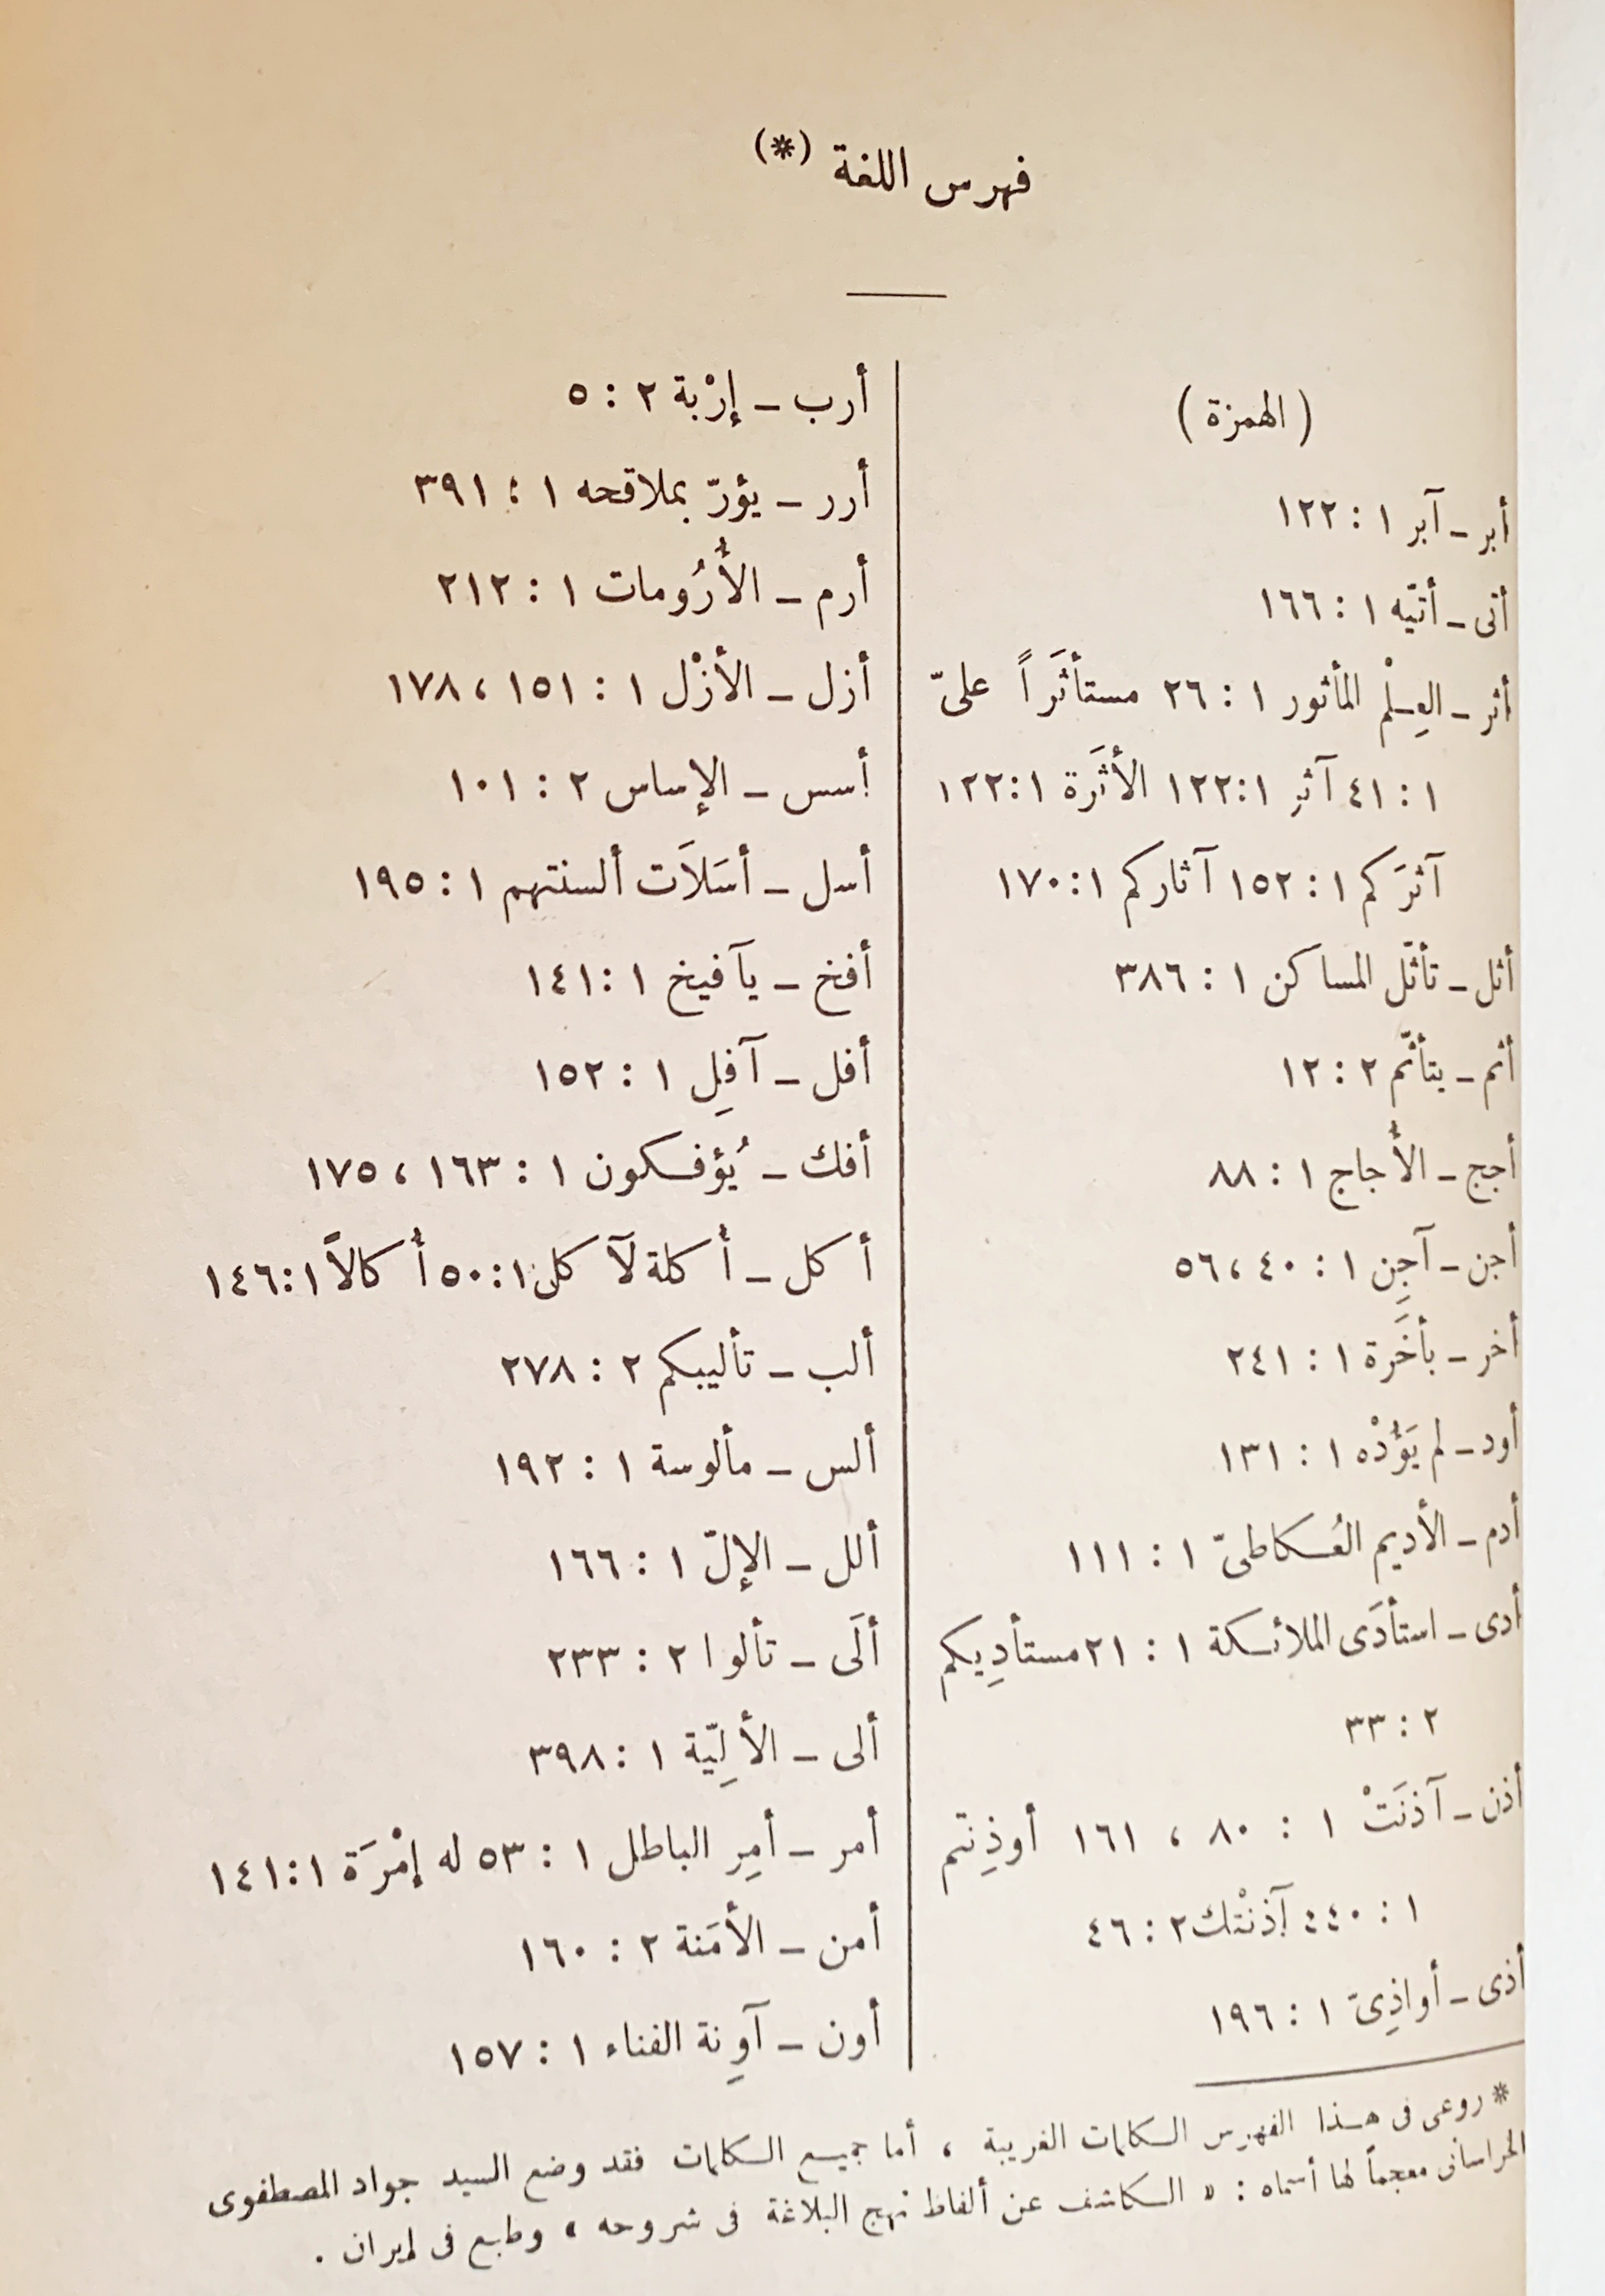 فهرس اللغة (*)
( الهمزة )
أبر ــ آبر ١ : ١٢٢
أتى ــ أتيّه ١ : ١٦٦
أثر ــ العِلْم المأثور ١ : ٢٦ مستأثَراً علىّ
١ : ٤١ آثر ١ : ١٢٢ الأثَرة ١ : ١٢٢
آثرَكم ١ : ١٥٢ آثاركم ١ : ١٧٠
أثل ــ تأثّل المساكن ١ : ٣٨٦
أثم ــ يتأثّم ٢ : ١٢
أجج ــ الأُجاج ١ : ٨٨
أجن ــ آجِن ١ : ٤٠ ، ٥٦
أخر ــ بأَخَرة ١ : ٢٤١
أود ــ لم يَؤُدْه ١ : ١٣١
أدم ــ الأديم العُكاطىّ ١ : ١١١
أدى ــ استأدَى الملائكة ١ : ٢١ مستأدِيكم
٢ : ٣٣
أذن ــ آذنَتْ ١ : ٨٠ ، ١٦١ أوذِنتم
١ : ٤٤٠ آذنْتك ٢ : ٤٦
أذى ــ أواذِىّ ١ : ١٩٦
أرب ــ إرْبة ٢ : ٥
أرر ــ يؤرّ بملاقحه ١ : ٣٩١
أرم ــ الأُرُومات ١ : ٢١٢
أزل ــ الأزْل ١ : ١٥١ ، ١٧٨
أسس ــ الإساس ٢ : ١٠١
أسل ــ أسَلاَت ألسنتهم ١ : ١٩٥
أفخ ــ يآفيخ ١ : ١٤١
أفل ــ آفِل ١ : ١٥٢
أفك ــ يُؤفكون ١ : ١٦٣ ، ١٧٥
أكل ــ أُكلة لآكل ١ : ٥٠ أُكالاً ١ : ١٤٦
ألب ــ تأليبكم ٢ : ٢٧٨
ألس ــ مألوسة ١ : ١٩٢
ألل ــ الإلّ ١ : ١٦٦
ألَى ــ تألوا ٢ : ٢٣٣
ألى ــ الألِيّة ١ : ٣٩٨
أمر ــ أمِر الباطل ١ : ٥٣ له إمْرَة ١ : ١٤١
أمن ــ الأمَنة ٢ : ١٦٠
أون ــ آوِنة الفناء ١ : ١٥٧
* روعى فى هذا الفهرس الكلمات الغريبة ، أما جميع الكلمات فقد وضع السيد جواد المصطفوى
الخراسانى معجماً لها أسماه : « الكاشف عن ألفاظ نهج البلاغة فى شروحه » وطبع فى إيران .